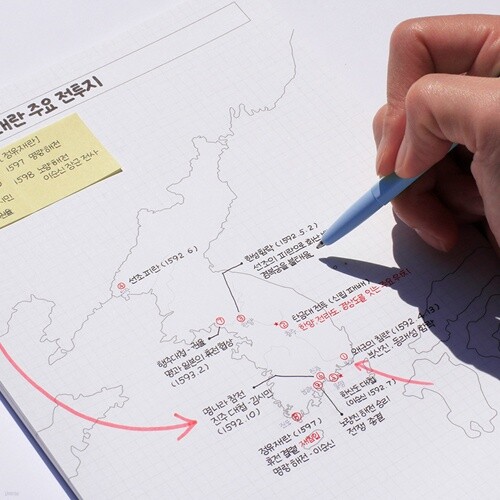 재란 주요 전투지
정유재란]
1597 명량 해전
1598 노량 해전
이순신 장군 전사
선조 피란 (1592 6)
①
한성 함락 (1592 5.2)
선조의 피란으로
경복궁을 불태움
탄금대 전투 (신립 패배)
한양 전라도, 경상도를 잇는
행주대첩 - 권율
명과 일본의 휴전 협상
(1593 2)
왜군의 침략 (1592 4.13)
부산진, 동래성 함락
명나라 참전
진주 대첩 - 김시민
(1592 10)
한산도 대첩
(이순신 1592 7)
노량진 해전 승리
전쟁 종결
정유재란 (1597)
휴전 결렬 재침입
명량 해전 - 이순신